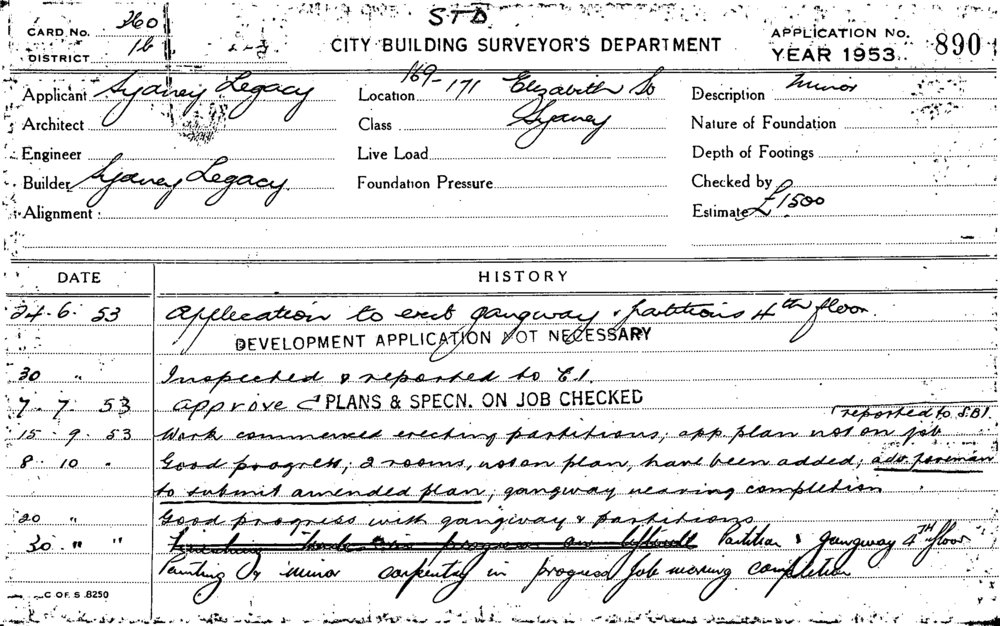 STD
CARD No. 360
DISTRICT 16
CITY BUILDING SURVEYOR'S DEPARTMENT
APPLICATION No. 890
YEAR 1953
Applicant Sydney Legacy
Location 169-171 Elizabeth St
Description Minor
Architect
Class Sydney
Nature of Foundation
Engineer
Live Load
Depth of Footings
Builder Sydney Legacy
Foundation Pressure
Checked by
Alignment
Estimate £1500
DATE HISTORY
24. 6. 53 Application to erect gangway & partitions 4th floor.
DEVELOPMENT APPLICATION NOT NECESSARY
30 " Inspected & reported to E.I.
7. 7. 53 Approved PLANS & SPECN. ON JOB CHECKED
reported to S.B.I.
15. 9. 53 Work commenced erecting partitions, app. plan not on job
8. 10 " Good progress, 2 rooms, not on plan, have been added, adv. foreman
to submit amended plan, gangway nearing completion
20 " Good progress with gangway & partitions
30. " " Partition & gangway 4TH floor
Painting & minor carpentry in progress Job nearing completion
C OF S .8250